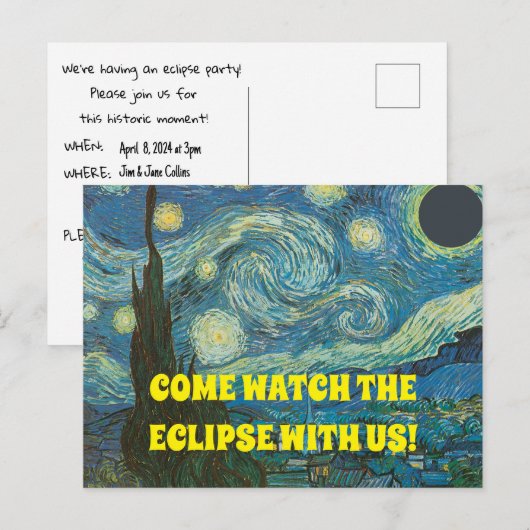 We're having an eclipse party!
Please join us for
this historic moment!
WHEN: April 8, 2024 at 3pm
WHERE: Jim & Jane Collins
PLE
COME WATCH THE
ECLIPSE WITH US!